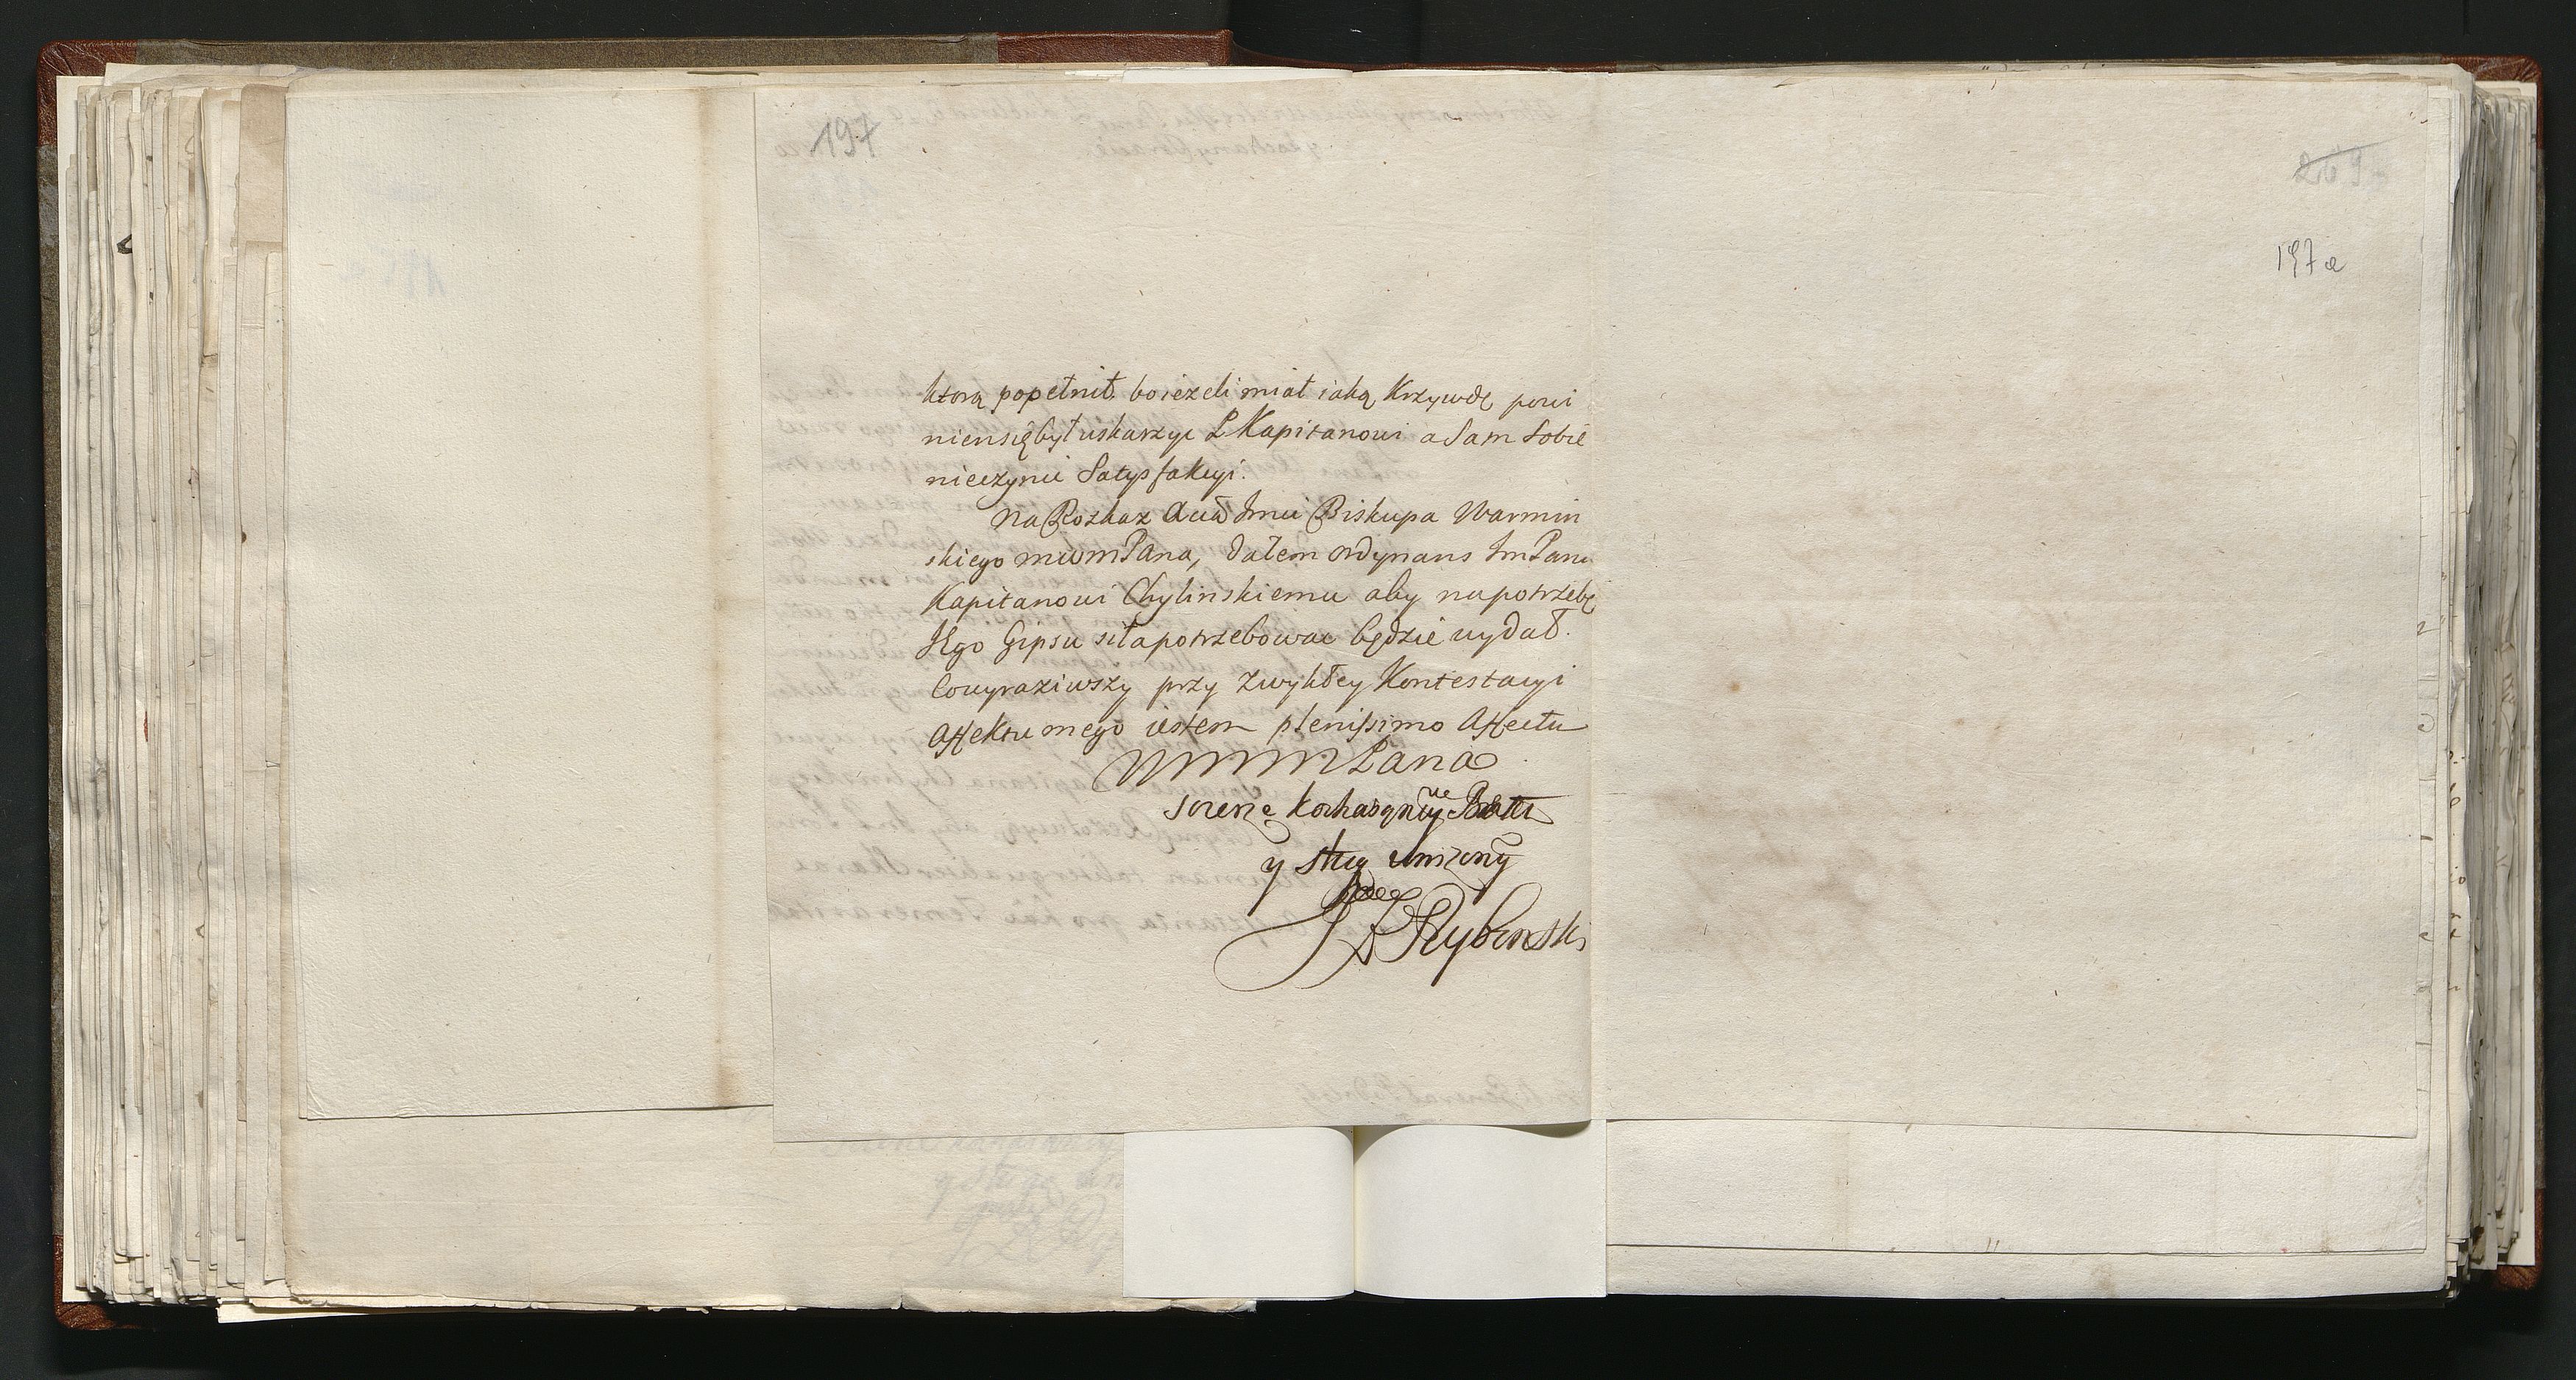 197
ktorą popełnił. bo ieżeli miał iaką Krzywdę powi
nien się był uskarzyc P Kapitanowi a Sam Sobie
nieczynic Satysfakcyi.
Na Rozkaz Imci Biskupa Warmin
skiego mwm Pana, dałem ordynans Im Panu
Kapitanowi Chylinskiemu aby na potrzebę
Jego Gipsu siła potrzebowac będzie wydał.
Co wyraziwszy przy zwykłey Kontestacyi
Affektu mego iestem plenissimo Affectu
WMMM Pana
y sługą unizony
Rybinski
269
197a